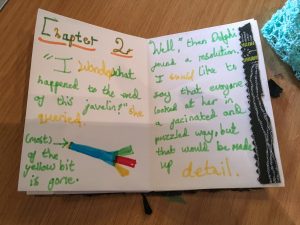 Chapter 2
"I wonder what
happened to the end
of this javelin?" she
queried.
(most)
of the
yellow bit
is gone.
Well," then Delphi
made a resolution.
I would like to
say that everyone
looked at her in
a facinated and
puzzled way, but
that would be made
up detail.